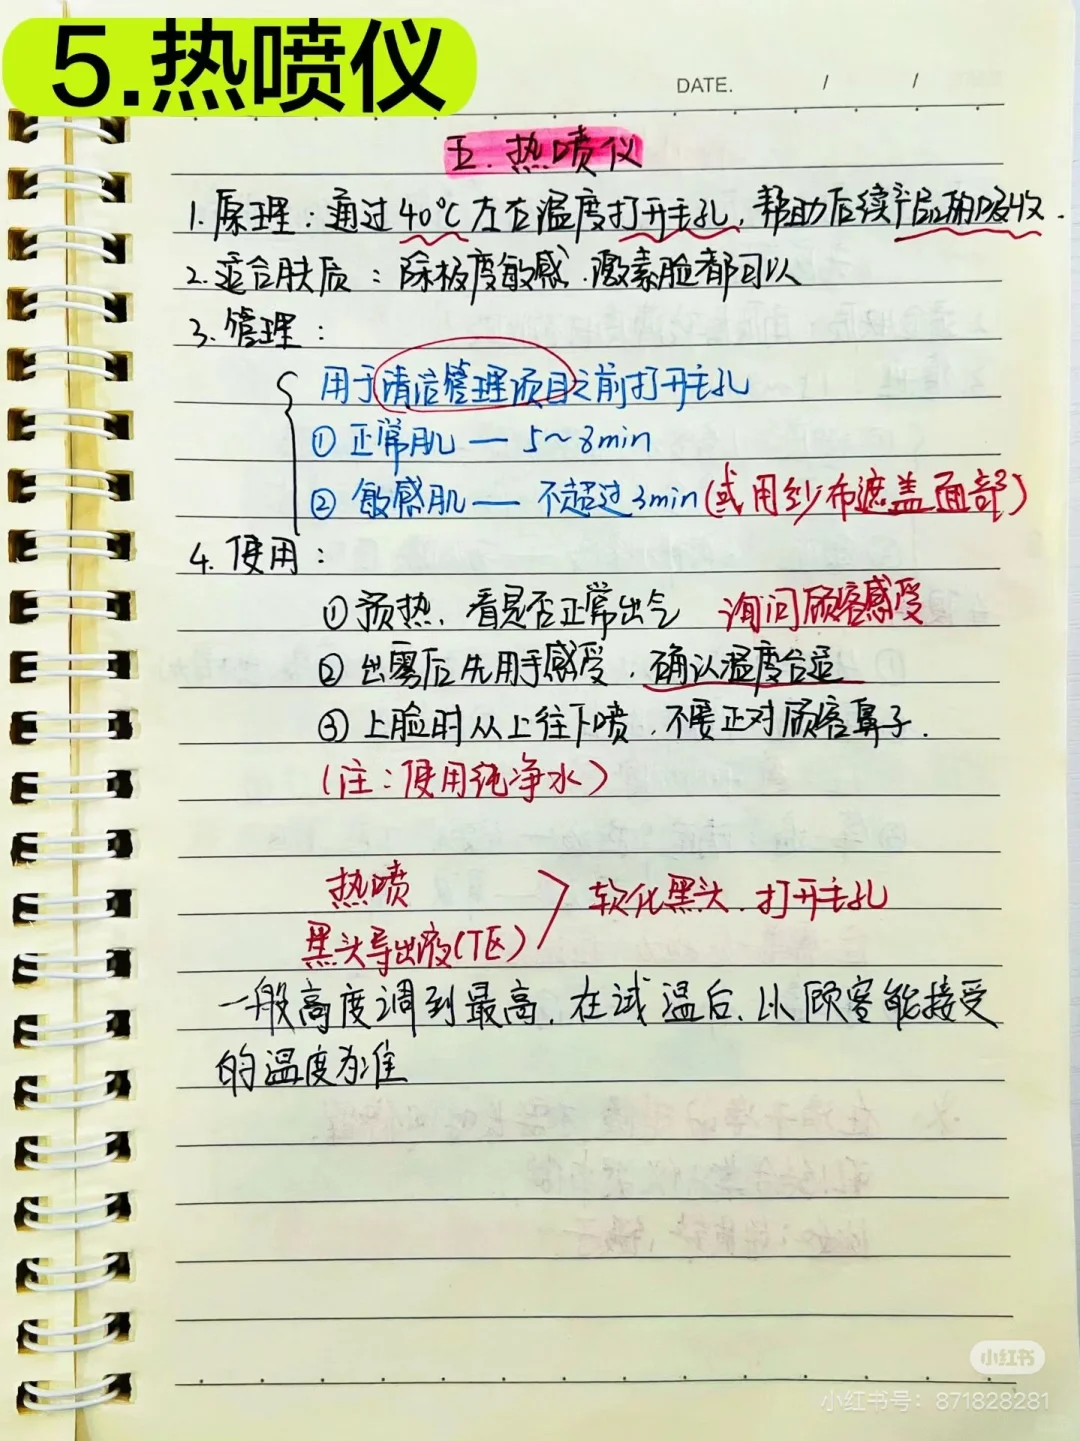 5.热喷仪
DATE. / /
五.热喷仪
1.原理：通过40℃左右温度打开毛孔，帮助后续产品的吸收.
2.适合肤质：除极度敏感.激素脸都可以
3.管理：
用于清洁管理项目之前打开毛孔
① 正常肌 — 5～8min
② 敏感肌 — 不超过3min(或用纱布遮盖面部)
4.使用：
①预热，看是否正常出气 询问顾客感受
②出雾后先用手感受，确认温度合适
③上脸时从上往下喷，不要正对顾客鼻子.
(注：使用纯净水)
热喷
软化黑头.打开毛孔
黑头导出液(T区)
一般高度调到最高.在试温后.以顾客能接受
的温度为准
小红书
小红书号：871828281